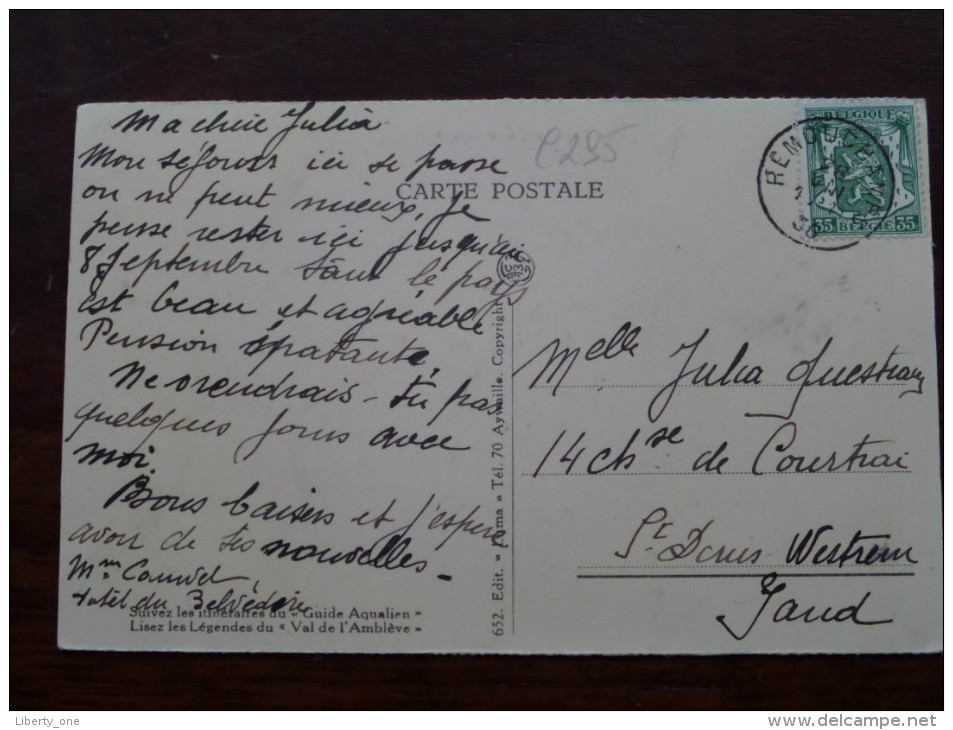 Ma chère Julia
Mon séjour ici se passe
on ne peut mieux, je
pense rester ici jusqu'au
8 Septembre tant le pays
est beau et agréable
Pension épatante,
Ne viendrais-tu pas
quelques jours avec
moi.
Bons baisers et j'espère
avoir de tes nouvelles -
Mme
Hotel du Belvédère
Suivez les itinéraires du « Guide Aqualien »
Lisez les Légendes du « Val de l'Amblève »
C295
CARTE POSTALE
652. Edit. « Luma » Tél. 70 Aywaille. Copyright
REMOUCHAMPS
BELGIQUE
35 BELGIE 35
Melle Julia
14 chse de Courtrai
St Denis Westrem
Gand
Liberty_one
delcampe.net